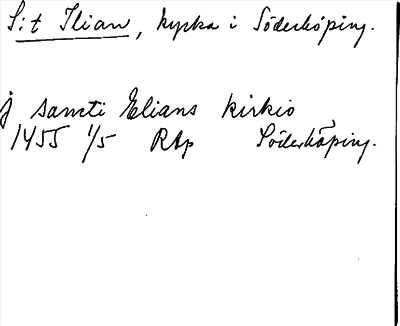 S:t Ilian, kyrka i Söderköping.
j sancti Elians kirkio
1455 1/5 RAp Söderköping.